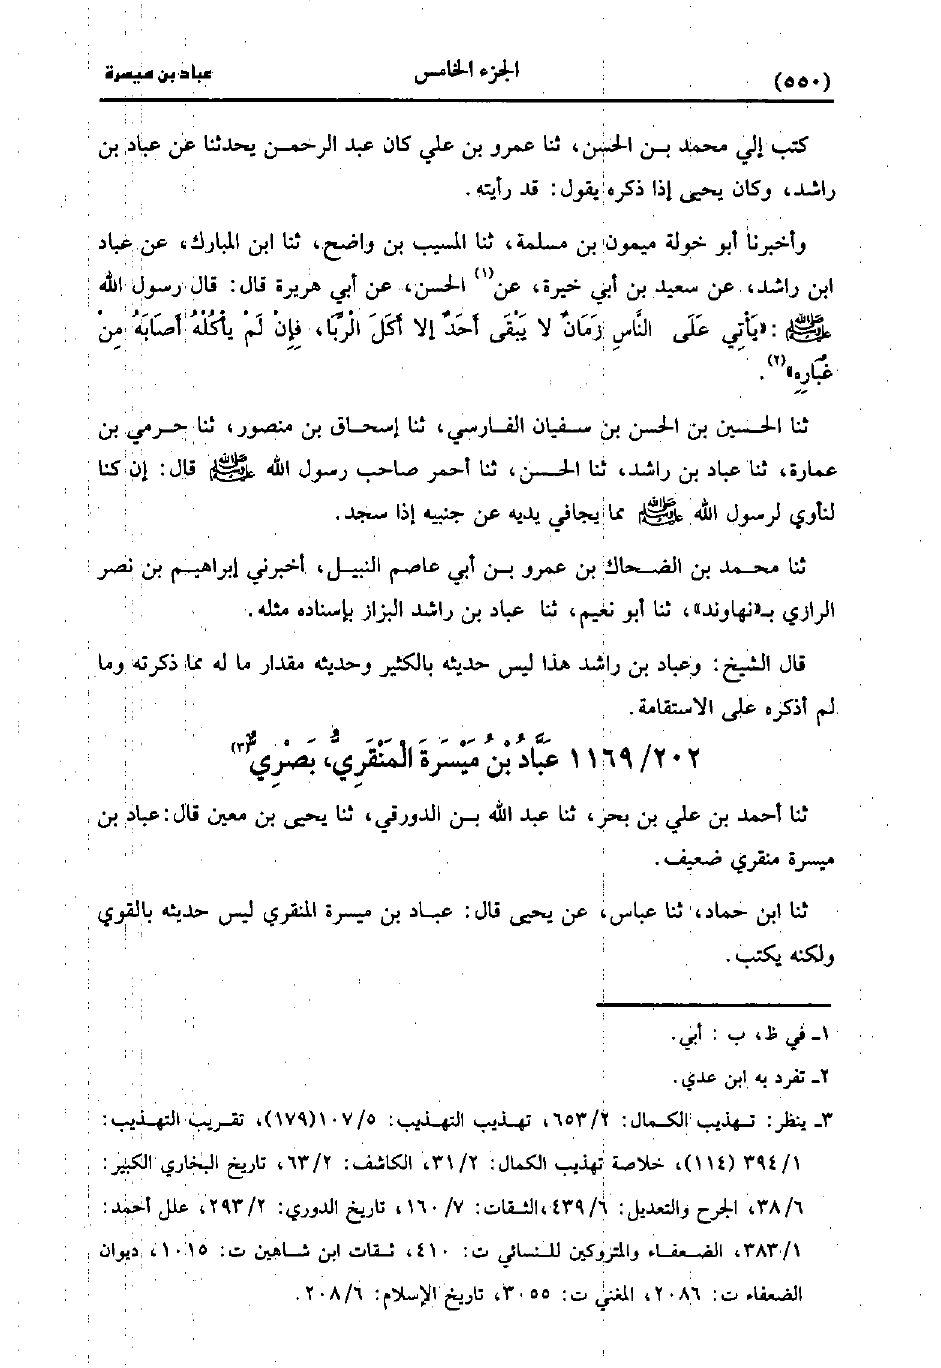 (٥٥٠) الجزء الخامس عباد بن ميسرة
كتب إلي محمد بن الحسن، ثنا عمرو بن علي كان عبد الرحمن يحدثنا عن عباد بن
راشد، وكان يحيى إذا ذكره يقول: قد رأيته.
وأخبرنا أبو خولة ميمون بن مسلمة، ثنا المسيب بن واضح، ثنا ابن المبارك، عن عباد
ابن راشد، عن سعيد بن أبي خيرة، عن(١) الحسن، عن أبي هريرة قال: قال رسول الله
ﷺ: «يَأْتِي عَلَى النَّاسِ زَمَانٌ لا يَبْقَى أَحَدٌ إلا أَكَلَ الْرِّبَا، فَإِنْ لَمْ يأْكُلْهُ أَصَابَهُ مِنْ
غُبَارِهِ»(٢).
ثنا الحسين بن الحسن بن سفيان الفارسي، ثنا إسحاق بن منصور، ثنا حرمي بن
عمارة، ثنا عباد بن راشد، ثنا الحسن، ثنا أحمر صاحب رسول الله ﷺ قال: إن كنا
لنأوي لرسول الله ﷺ مما يجافي يديه عن جنبيه إذا سجد.
ثنا محمد بن الضحاك بن عمرو بن أبي عاصم النبيل، أخبرني إبراهيم بن نصر
الرازي بـ«نهاوند»، ثنا أبو نعيم، ثنا عباد بن راشد البزاز بإسناده مثله.
قال الشيخ: وعباد بن راشد هذا ليس حديثه بالكثير وحديثه مقدار ما له مما ذكرته وما
لم أذكره على الاستقامة.
١١٦٩/٢٠٢ عَبَّادُ بْنُ مَيْسَرَةَ الْمَنْقَرِيُّ، بَصْرِيٌّ(٣)
ثنا أحمد بن علي بن بحر، ثنا عبد الله بن الدورقي، ثنا يحيى بن معين قال: عباد بن
ميسرة منقري ضعيف.
ثنا ابن حماد، ثنا عباس، عن يحيى قال: عباد بن ميسرة المنقري ليس حديثه بالقوي
ولكنه يكتب.
١ـ في ظ، ب : أبي.
٢ـ تفرد به ابن عدي.
٣ـ ينظر: تهذيب الكمال: ٦٥٣/٢، تهذيب التهذيب: ١٠٧/٥(١٧٩)، تقريب التهذيب:
٣٩٤/١ (١١٤)، خلاصة تهذيب الكمال: ٣١/٢، الكاشف: ٦٣/٢، تاريخ البخاري الكبير:
٣٨/٦، الجرح والتعديل: ٤٣٩/٦،الثقات: ١٦٠/٧، تاريخ الدوري: ٢٩٣/٢، علل أحمد:
٣٨٣/١، الضعفاء والمتروكين للنسائي ت: ٤١٠، ثقات ابن شاهين ت: ١٠١٥، ديوان
الضعفاء ت: ٢٠٨٦، المغني ت: ٣٠٥٥، تاريخ الإسلام: ٢٠٨/٦.